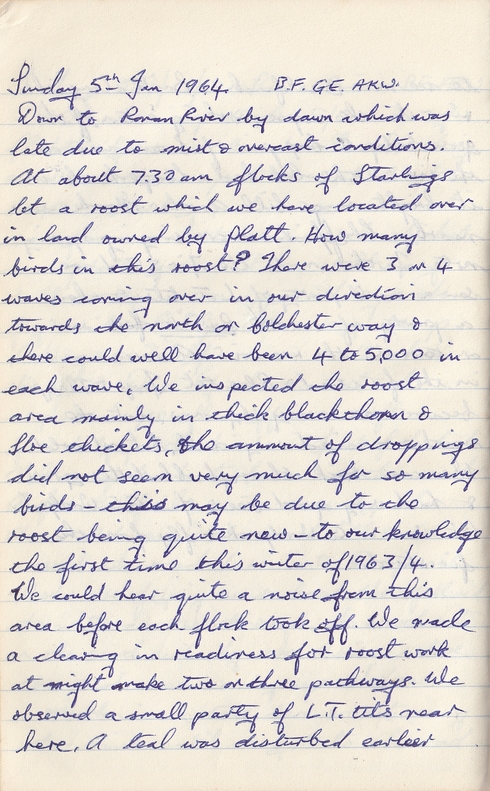 Sunday 5th Jan 1964. B.F. GE. AKW.
Down to Roman River by dawn which was
late due to mist & overcast conditions.
At about 7.30 am flocks of Starlings
let a roost which we have located over
in land owned by Platt. How many
birds in this roost? There were 3 or 4
waves coming over in our direction
towards the north or Colchester way &
there could well have been 4 to 5,000 in
each wave. We inspected the roost
area mainly in thick blackthorn &
sloe thickets, the ammout of droppings
did not seem very much for so many
birds - this may be due to the
roost being quite new - to our knowledge
the first time this winter of 1963/4.
We could hear quite a noise from this
area before each flock took off. We made
a clearing in readiness for roost work
at might make two or three pathways. We
observed a small party of L.T. tits near
here. A teal was disturbed earlier